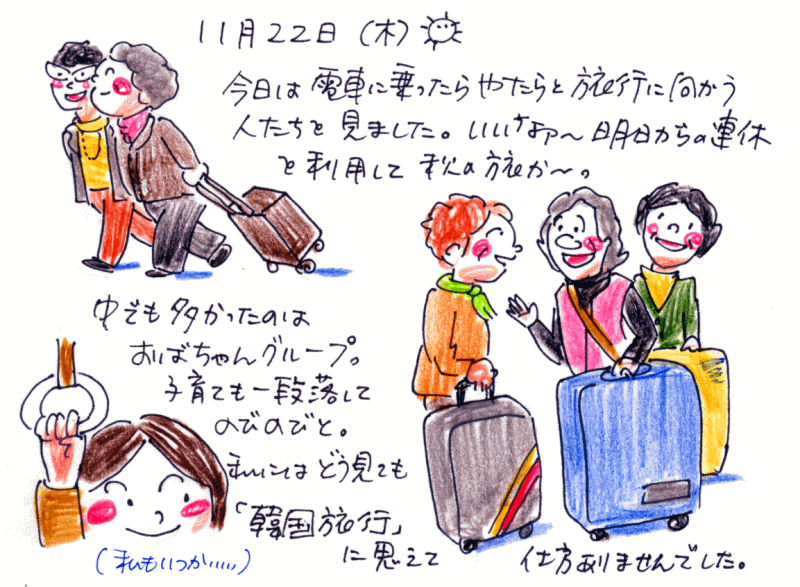 11月22日(木)
今日は電車に乗ったらやたらと旅行に向かう
人たちを見ました。いいなァ〜明日からの連休
を利用して秋の旅か〜。
中でも多かったのは
おばちゃんグループ。
子育ても一段落して
のびのびと。
私にはどう見ても
「韓国旅行」
に思えて 仕方ありませんでした。
(私もいつか……)